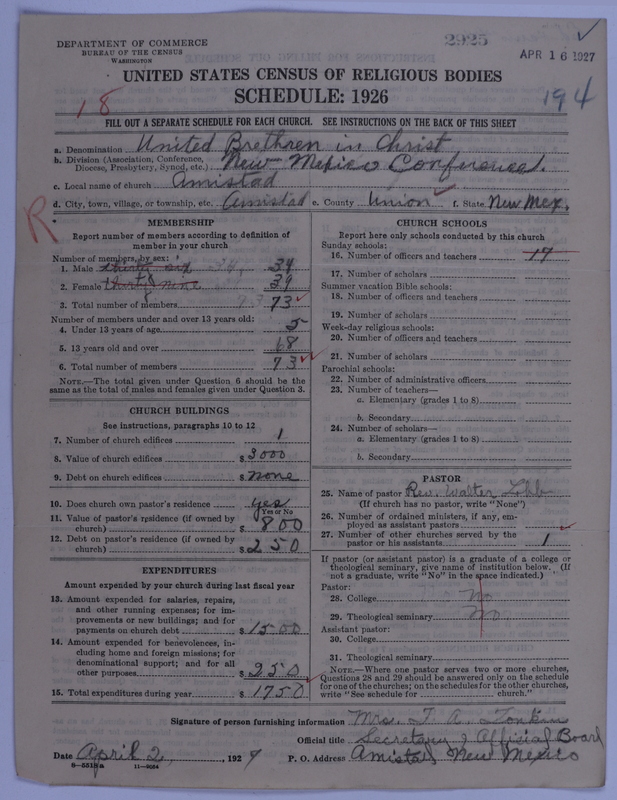 DEPARTMENT OF COMMERCE
BUREAU OF THE CENSUS
WASHINGTON
2925
APR 16 1927
UNITED STATES CENSUS OF RELIGIOUS BODIES
SCHEDULE: 1926
18
194
FILL OUT A SEPARATE SCHEDULE FOR EACH CHURCH. SEE INSTRUCTIONS ON THE BACK OF THIS SHEET
a. Denomination United Brethren in Christ
b. Division (Association, Conference, Diocese, Presbytery, Synod, etc.) New Mexico Conference.
c. Local name of church Amistad
d. City, town, village, or township, etc. Amistad e. County Union f. State New Mex.
R
MEMBERSHIP
Report number of members according to definition of
member in your church
Number of members, by sex:
1. Male thirty six 34, 34
2. Female thirty nine 39
2. Total number of members 73 73
Number of members under and over 13 years old:
4. Under 13 years of age 5
5. 13 years old and over 68
6. Total number of members 73
NOTE.—The total given under Question 6 should be the
same as the total of males and females given under Question 3.
CHURCH BUILDINGS
See instructions, paragraphs 10 to 12
7. Number of church edifices 1
8. Value of church edifices $ 3000
9. Debt on church edifices $ none
10. Does church own pastor's residence yes
(Yes or No)
11. Value of pastor's residence (if owned by
church) $ 800
12. Debt on pastor's residence (if owned by
church) $ 250
EXPENDITURES
Amount expended by your church during last fiscal year
13. Amount expended for salaries, repairs,
and other running expenses; for im-
provements or new buildings; and for
payments on church debt $ 1500
14. Amount expended for benevolences, in-
cluding home and foreign missions; for
denominational support; and for all
other purposes $ 250
15. Total expenditures during year $ 1750
CHURCH SCHOOLS
Report here only schools conducted by this church
Sunday schools:
16. Number of officers and teachers 17
17. Number of scholars
Summer vacation Bible schools:
18. Number of officers and teachers
19. Number of scholars
Week-day religious schools:
20. Number of officers and teachers
21. Number of scholars
Parochial schools:
22. Number of administrative officers
23. Number of teachers—
a. Elementary (grades 1 to 8)
b. Secondary
24. Number of scholars—
a. Elementary (grades 1 to 8)
b. Secondary
PASTOR
25. Name of pastor Rev. Walter
(If church has no pastor, write "None")
26. Number of ordained ministers, if any, em-
ployed as assistant pastors
27. Number of other churches served by the
pastor or his assistants 1
If pastor (or assistant pastor) is a graduate of a college or
theological seminary, give name of institution below. (If
not a graduate, write "No" in the space indicated.)
Pastor:
28. College No
29. Theological seminary No
Assistant pastor:
30. College
31. Theological seminary
NOTE.—Where one pastor serves two or more churches,
Questions 28 and 29 should be answered only on the schedule
for one of the churches; on the schedules for the other churches,
write "See schedule for church."
Signature of person furnishing information Mrs. T. A. Tonkin
Official title Secretary of Official Board
Date April 2, 1927 P. O. Address Amistad New Mexico
8-5518a 11-9054